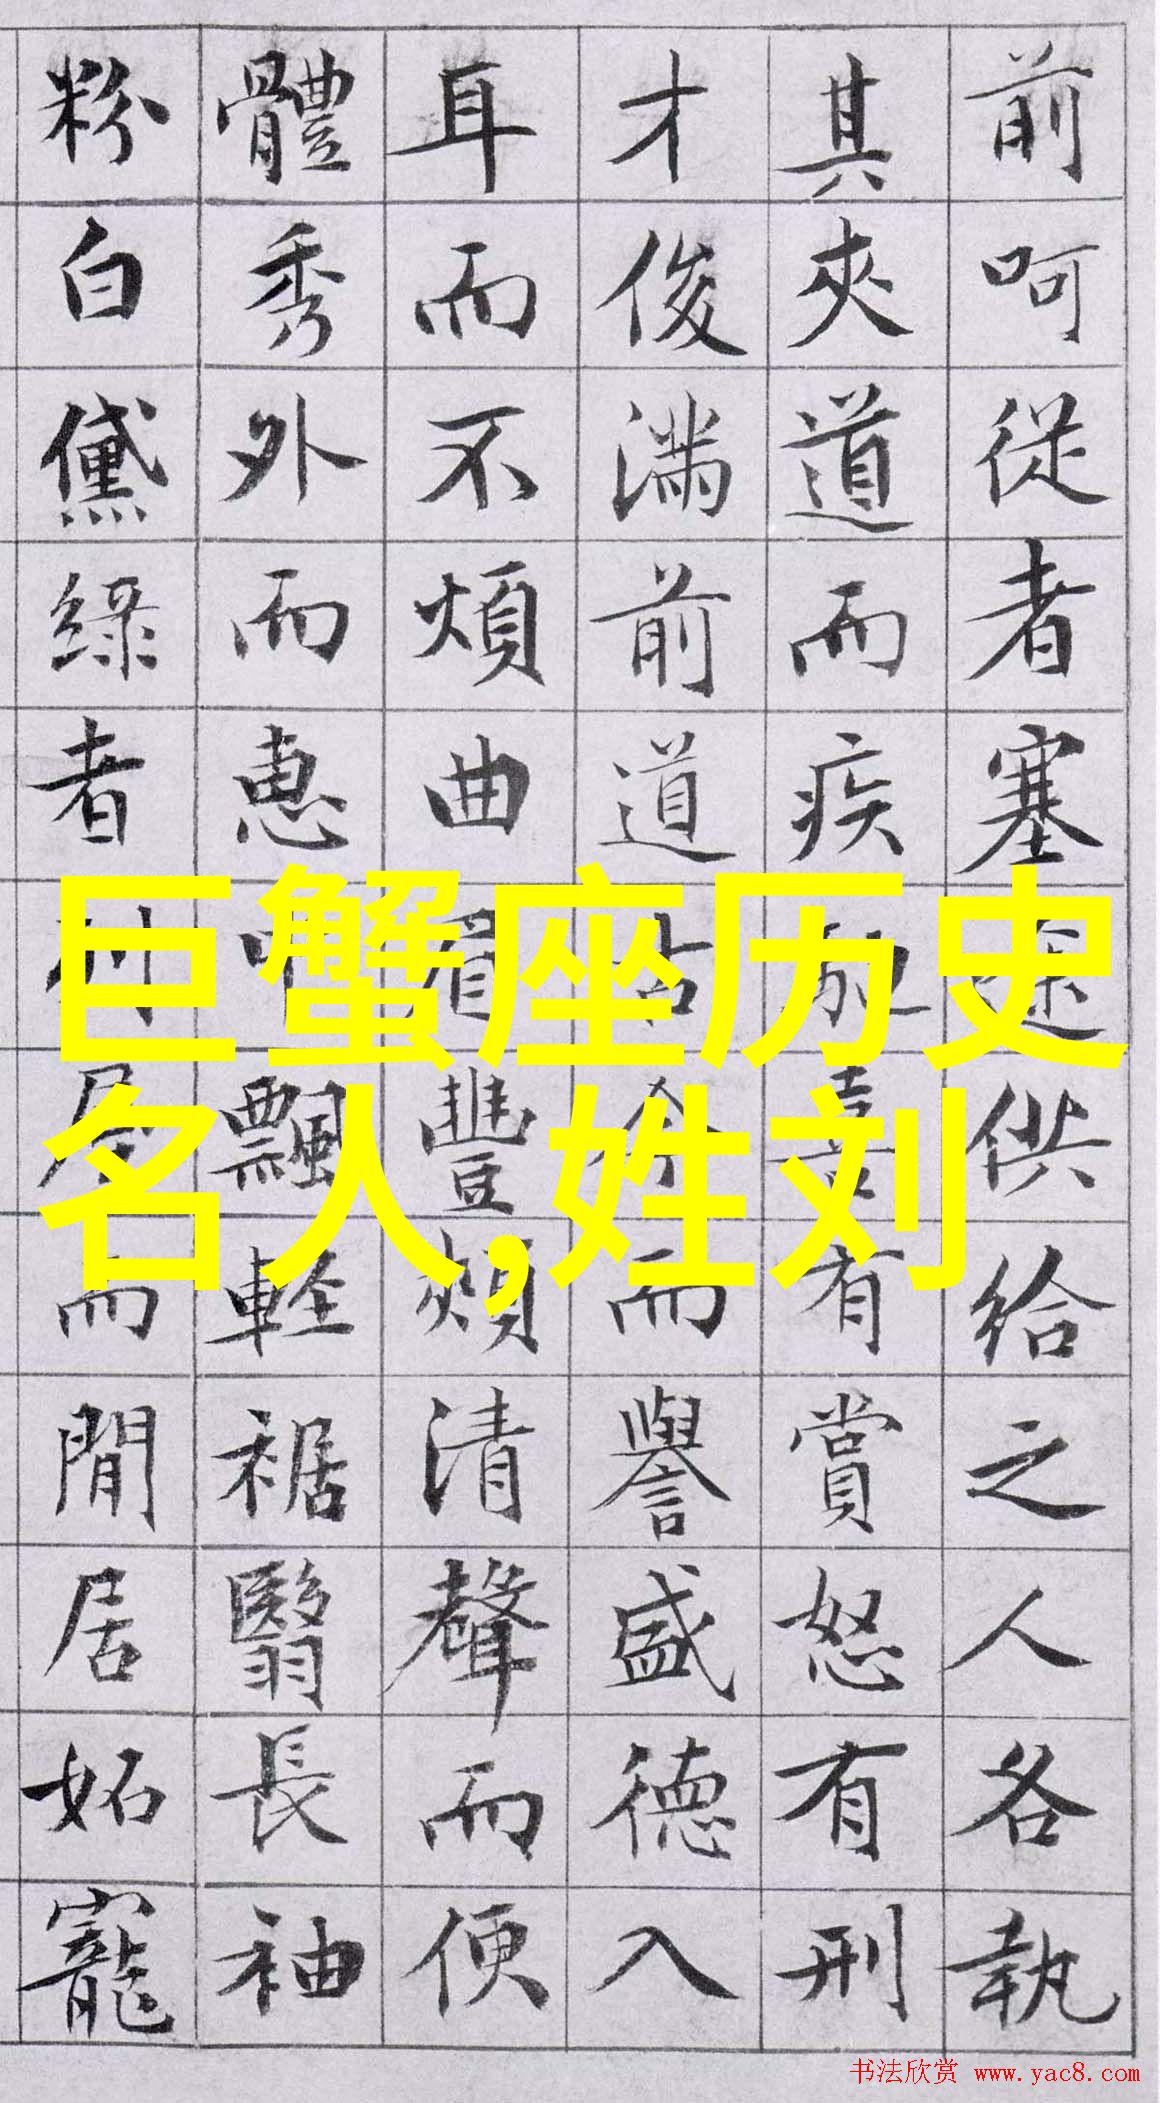 前呵從者塞途供給之人各執
其夾道而疾馳喜有賞怒有刑
才俊滿前道古今而譽盛德入
耳而不煩曲眉豐頰清聲而便
體秀外而惠中飄輕裾翳長袖
粉白黛綠者列屋而閒居妬寵
巨蟹座历史
名人,姓刘
书法欣赏 www.yac8.com